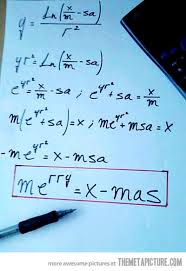 y = Ln(x/m - sa) / r²
yr² = Ln(x/m - sa)
e^yr² = x/m - sa ; e^yr² + sa = x/m
m(e^yr² + sa) = x ; me^yr² + msa = x
- me^yr² = x - msa
me^rry = x - mas
more awesome pictures at THEMETAPICTURE.COM